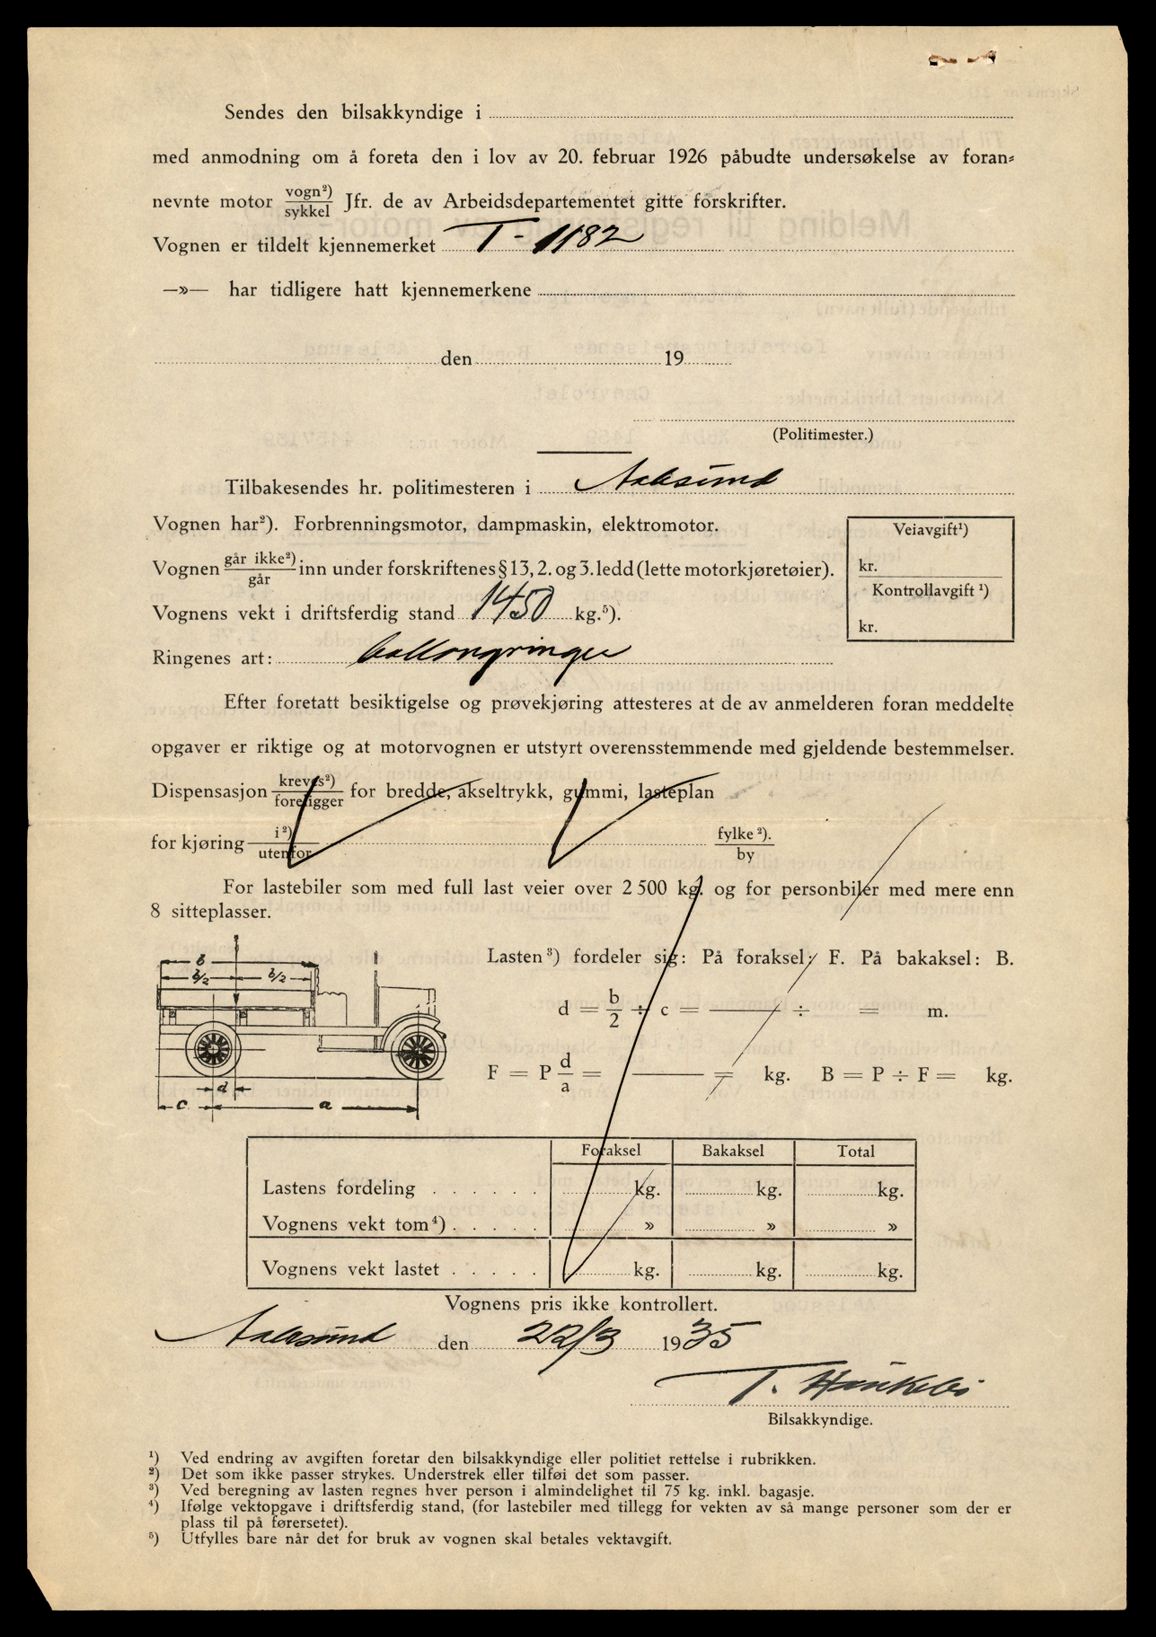 Sendes den bilsakkyndige i
med anmodning om å foreta den i lov av 20. februar 1926 påbudte undersøkelse av foran=
nevnte motor vogn²)/sykkel Jfr. de av Arbeidsdepartementet gitte forskrifter.
Vognen er tildelt kjennemerket T - 1182
—»— har tidligere hatt kjennemerkene
den 19
(Politimester.)
Tilbakesendes hr. politimesteren i Aalesund
Vognen har²). Forbrenningsmotor, dampmaskin, elektromotor.
Veiavgift¹)
Vognen går ikke²)/går inn under forskriftenes § 13, 2. og 3. ledd (lette motorkjøretøier).
kr.
Kontrollavgift ¹)
Vognens vekt i driftsferdig stand 1450 kg.⁵).
kr.
Ringenes art: ballongringer
Efter foretatt besiktigelse og prøvekjøring attesteres at de av anmelderen foran meddelte
opgaver er riktige og at motorvognen er utstyrt overensstemmende med gjeldende bestemmelser.
Dispensasjon kreves²)/foreligger for bredde, akseltrykk, gummi, lasteplan
for kjøring i²)/utenfor fylke²)./by
For lastebiler som med full last veier over 2 500 kg. og for personbiler med mere enn
8 sitteplasser.
Lasten³) fordeler sig: På foraksel: F. På bakaksel: B.
b
b/2 b/2
d = b/2 ÷ c = ——— ÷ = m.
F = P d/a = ——— = kg. B = P ÷ F = kg.
d
c a
Foraksel Bakaksel Total
Lastens fordeling . . . . . . kg. kg. kg.
Vognens vekt tom⁴) . . . . . » » »
Vognens vekt lastet . . . . . kg. kg. kg.
Vognens pris ikke kontrollert.
Aalesund den 22/3 1935
T.
Bilsakkyndige.
¹) Ved endring av avgiften foretar den bilsakkyndige eller politiet rettelse i rubrikken.
²) Det som ikke passer strykes. Understrek eller tilføi det som passer.
³) Ved beregning av lasten regnes hver person i almindelighet til 75 kg. inkl. bagasje.
⁴) Ifølge vektopgave i driftsferdig stand, (for lastebiler med tillegg for vekten av så mange personer som der er
plass til på førersetet).
⁵) Utfylles bare når det for bruk av vognen skal betales vektavgift.